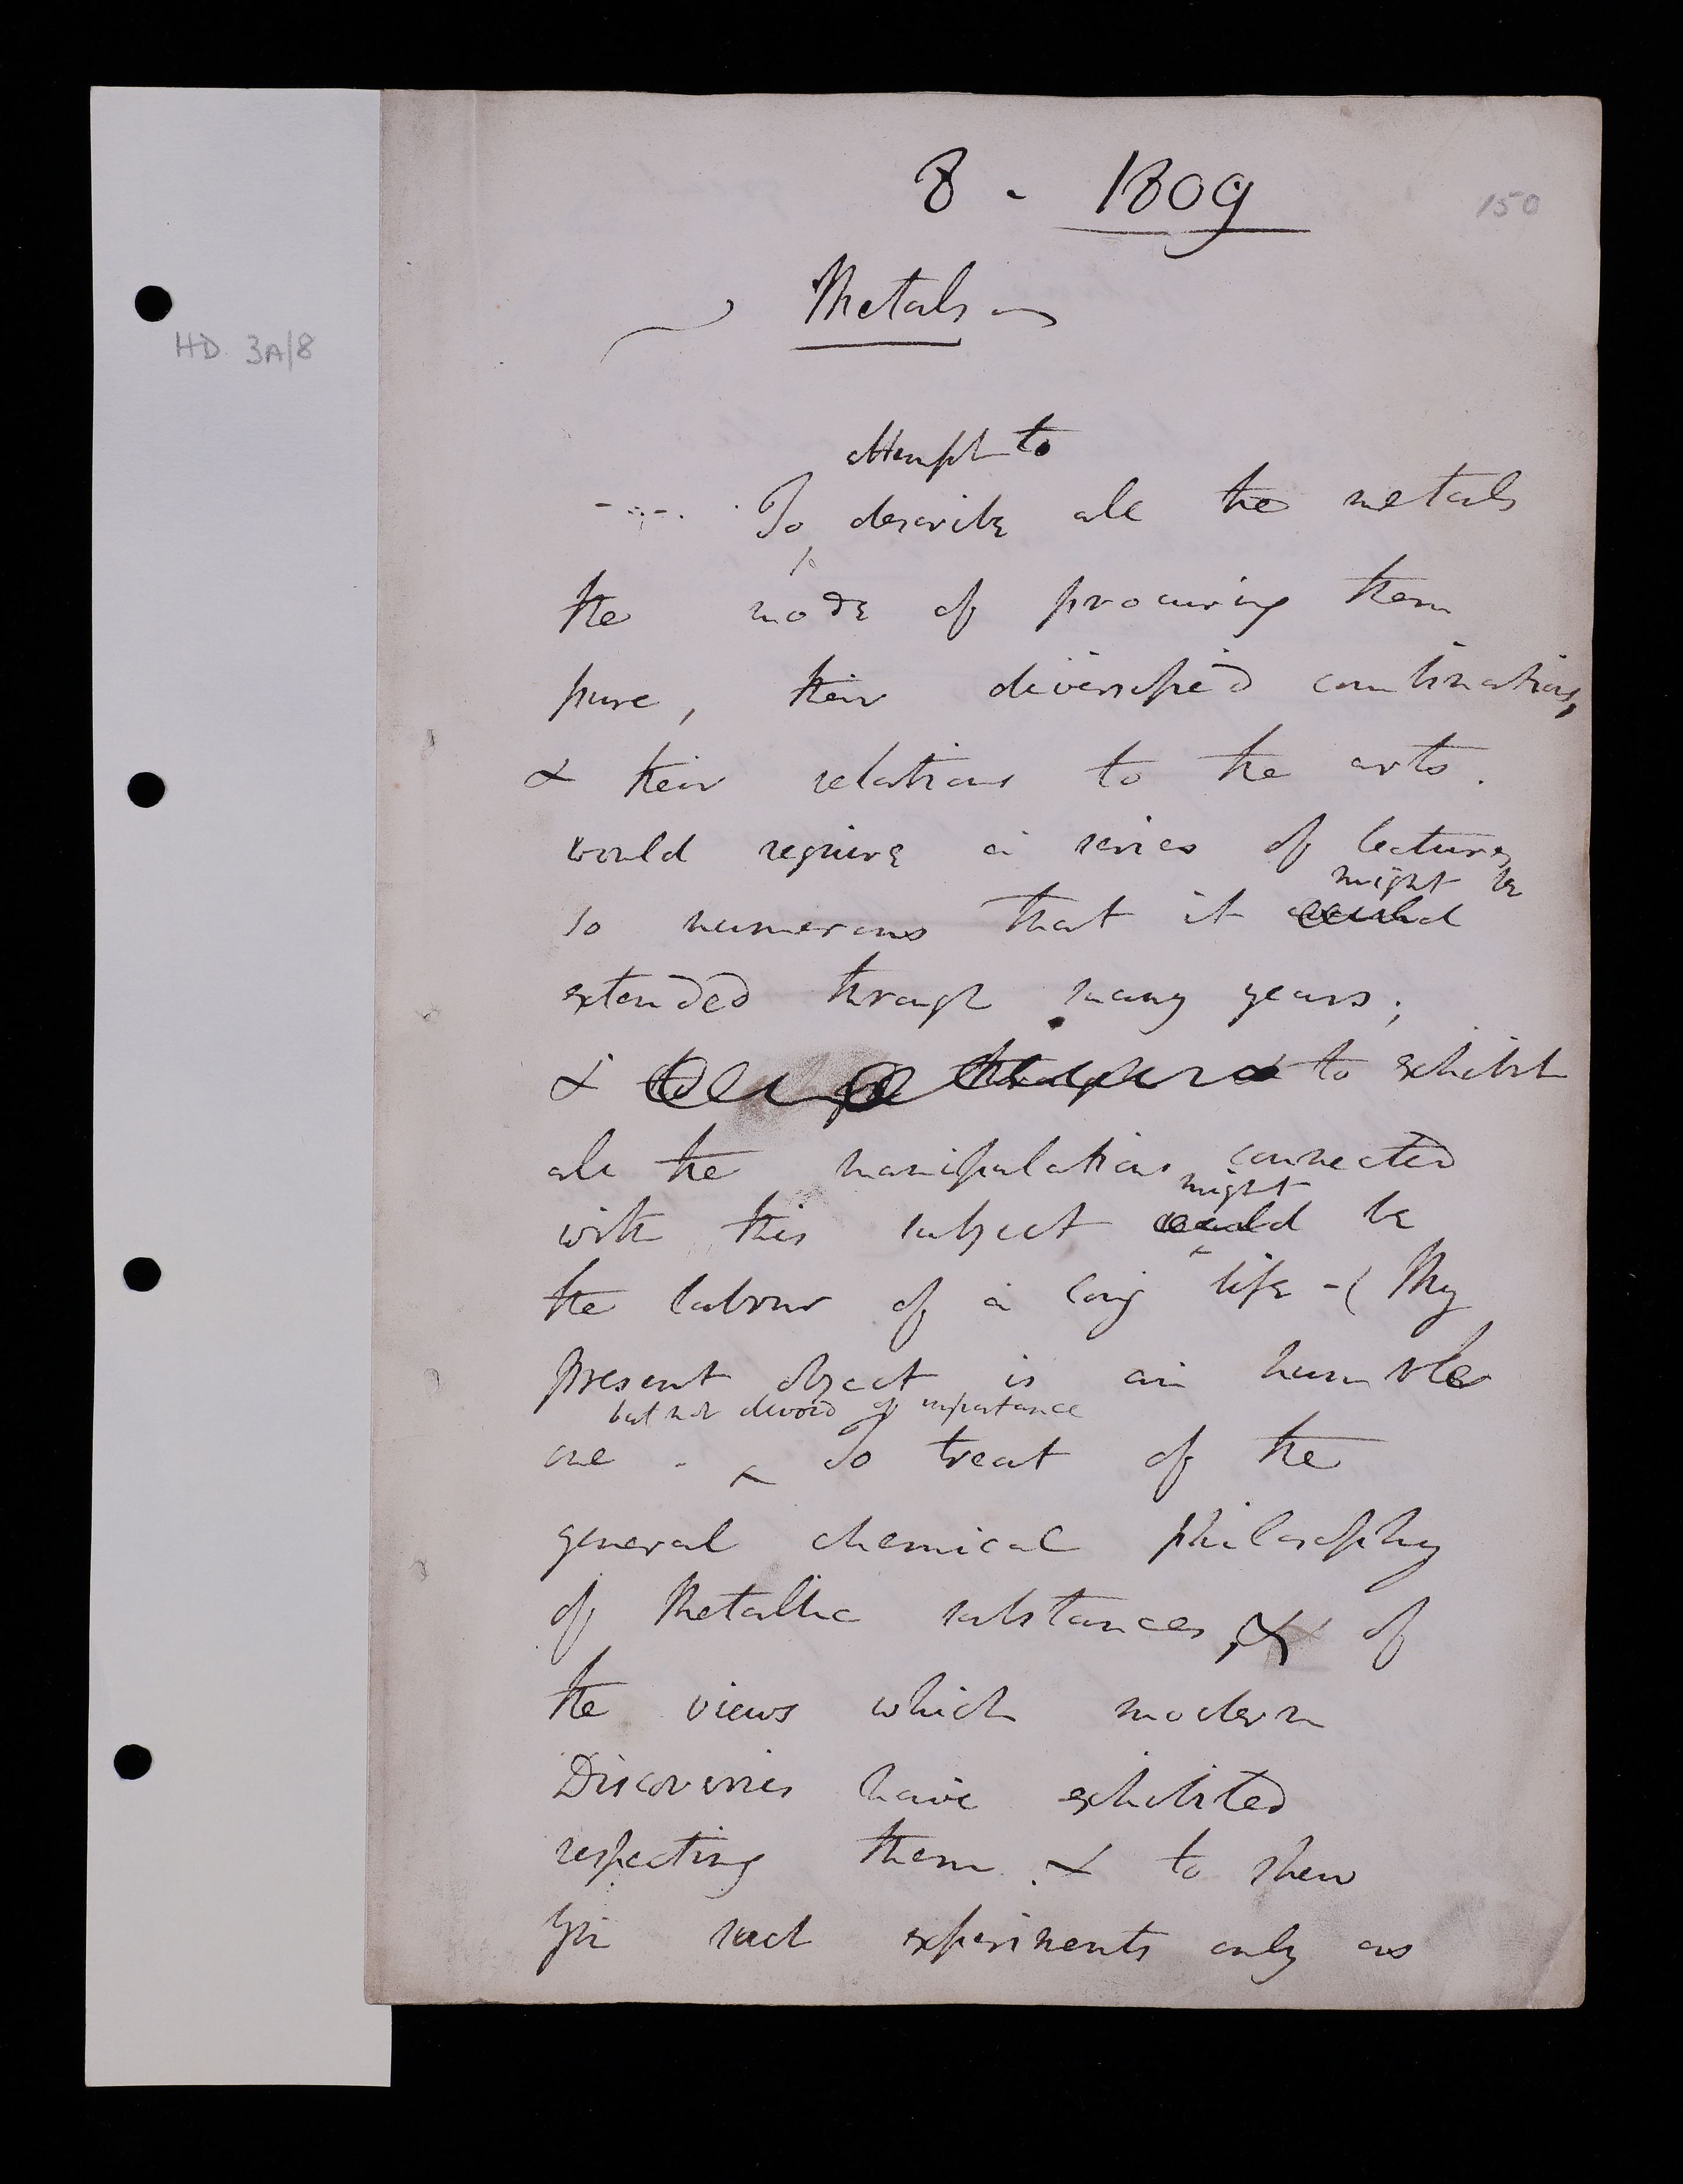 8 - 1809
150
Metals
HD. 3A/8
attempt to
To describe all the metals
the mode of procuring them
pure, their diversified combinations,
& their relations to the arts.
would require a series of lectures
might be
so numerous that it could
extended through many years;
& to exhibit
all the manipulations connected
might
with this subject could be
the labour of a long life -( My
present object is an humble
but not devoid of importance
one - To treat of the
general chemical philosophy
of Metallic substances, & of
the views which modern
Discoveries have exhibited
respecting them. & to shew
you such experiments only as